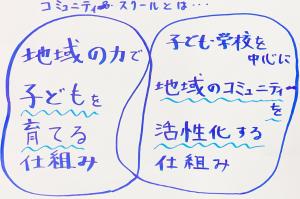 コミュニティ・スクールとは・・・
地域の力で
子どもを
育てる
仕組み
子ども・学校を
中心に
地域のコミュニティー
を
活性化する
仕組み